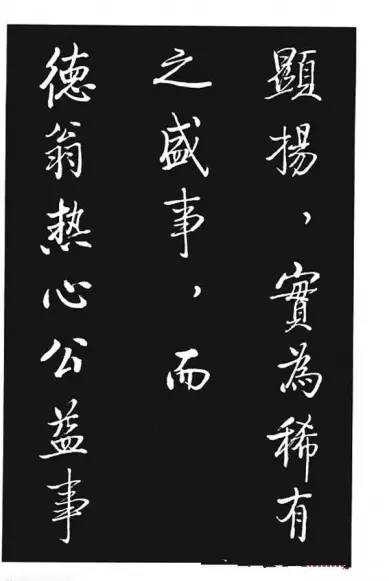 顯揚，實為稀有
之盛事，而
德翁热心公益事